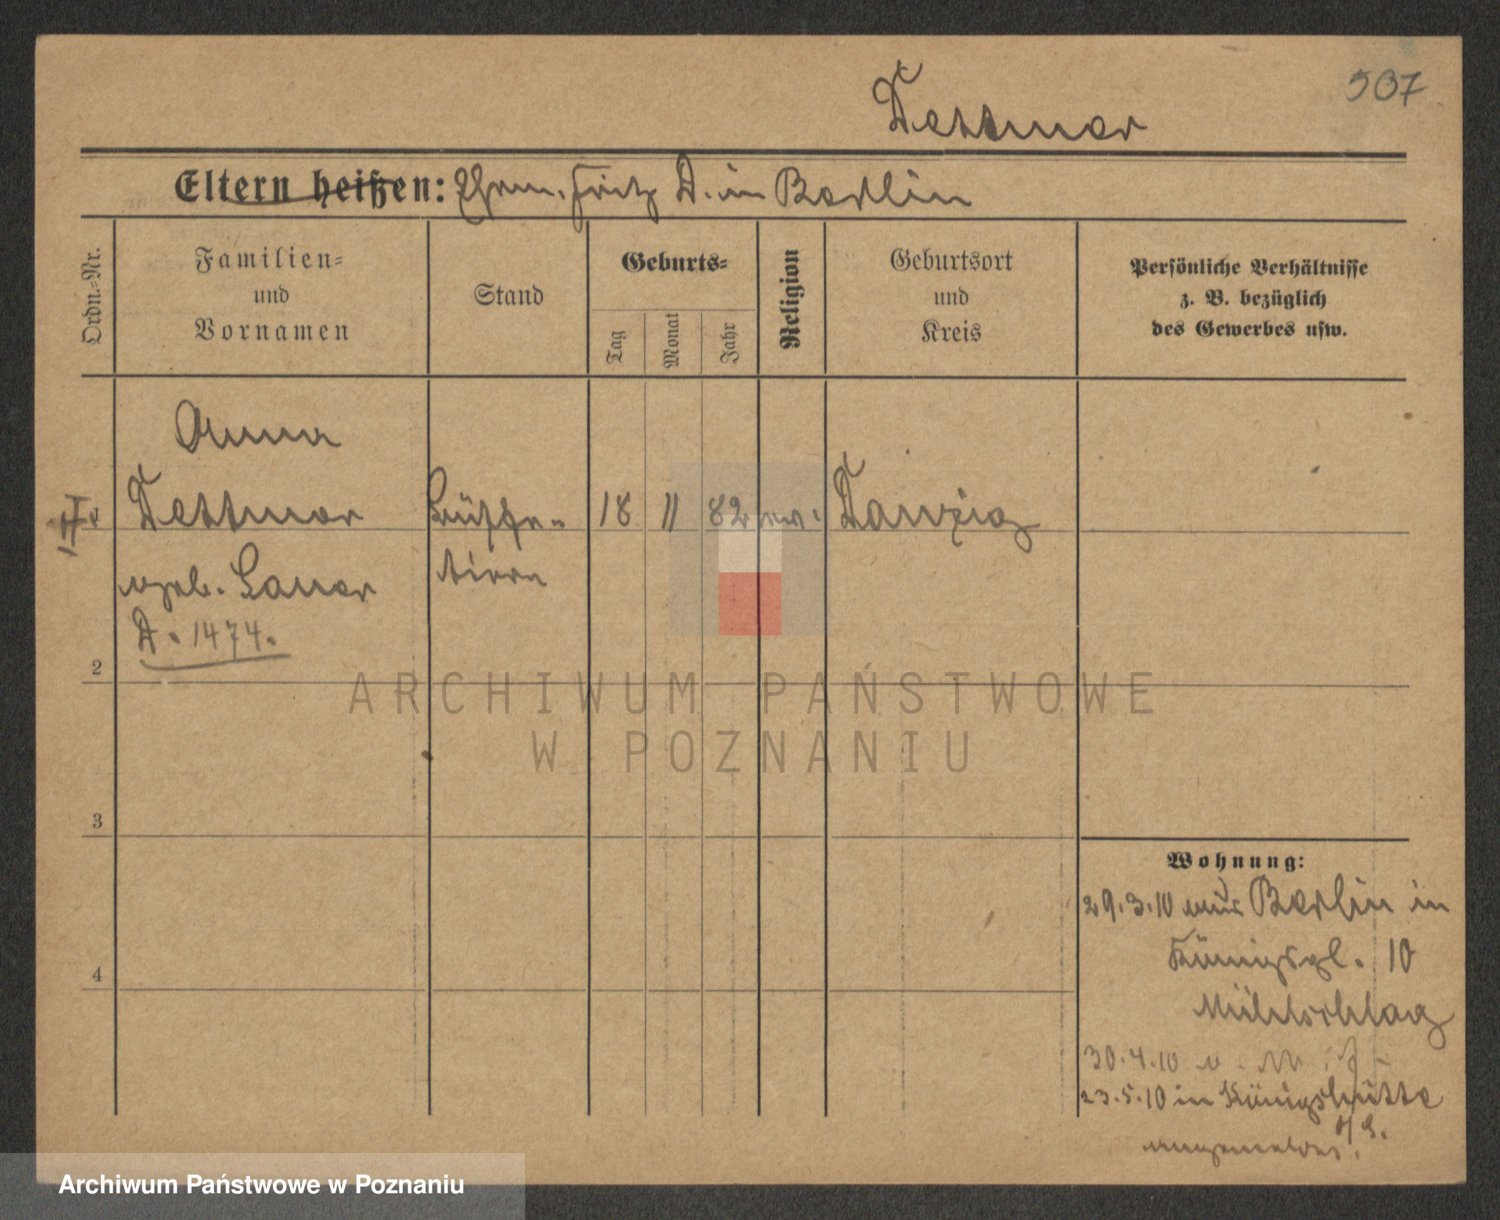 507
Dettmer
Eltern heißen: Ehem. Fritz D. in Berlin
Ordn.=Nr.
Familien=
und
Vornamen
Stand
Geburts=
Tag
Monat
Jahr
Religion
Geburtsort
und
Kreis
Persönliche Verhältnisse
z. B. bezüglich
des Gewerbes usw.
Anna
Dettmer
geb. Sauer
D. 1474.
18 11 82 ev. Danzig
2
3
4
ARCHIWUM PAŃSTWOWE
W POZNANIU
Wohnung:
29.3.10 aus Berlin in
Königspl. 10
30.4.10
23.5.10 in Königshütte
O/S.
angemeldet.
Archiwum Państwowe w Poznaniu